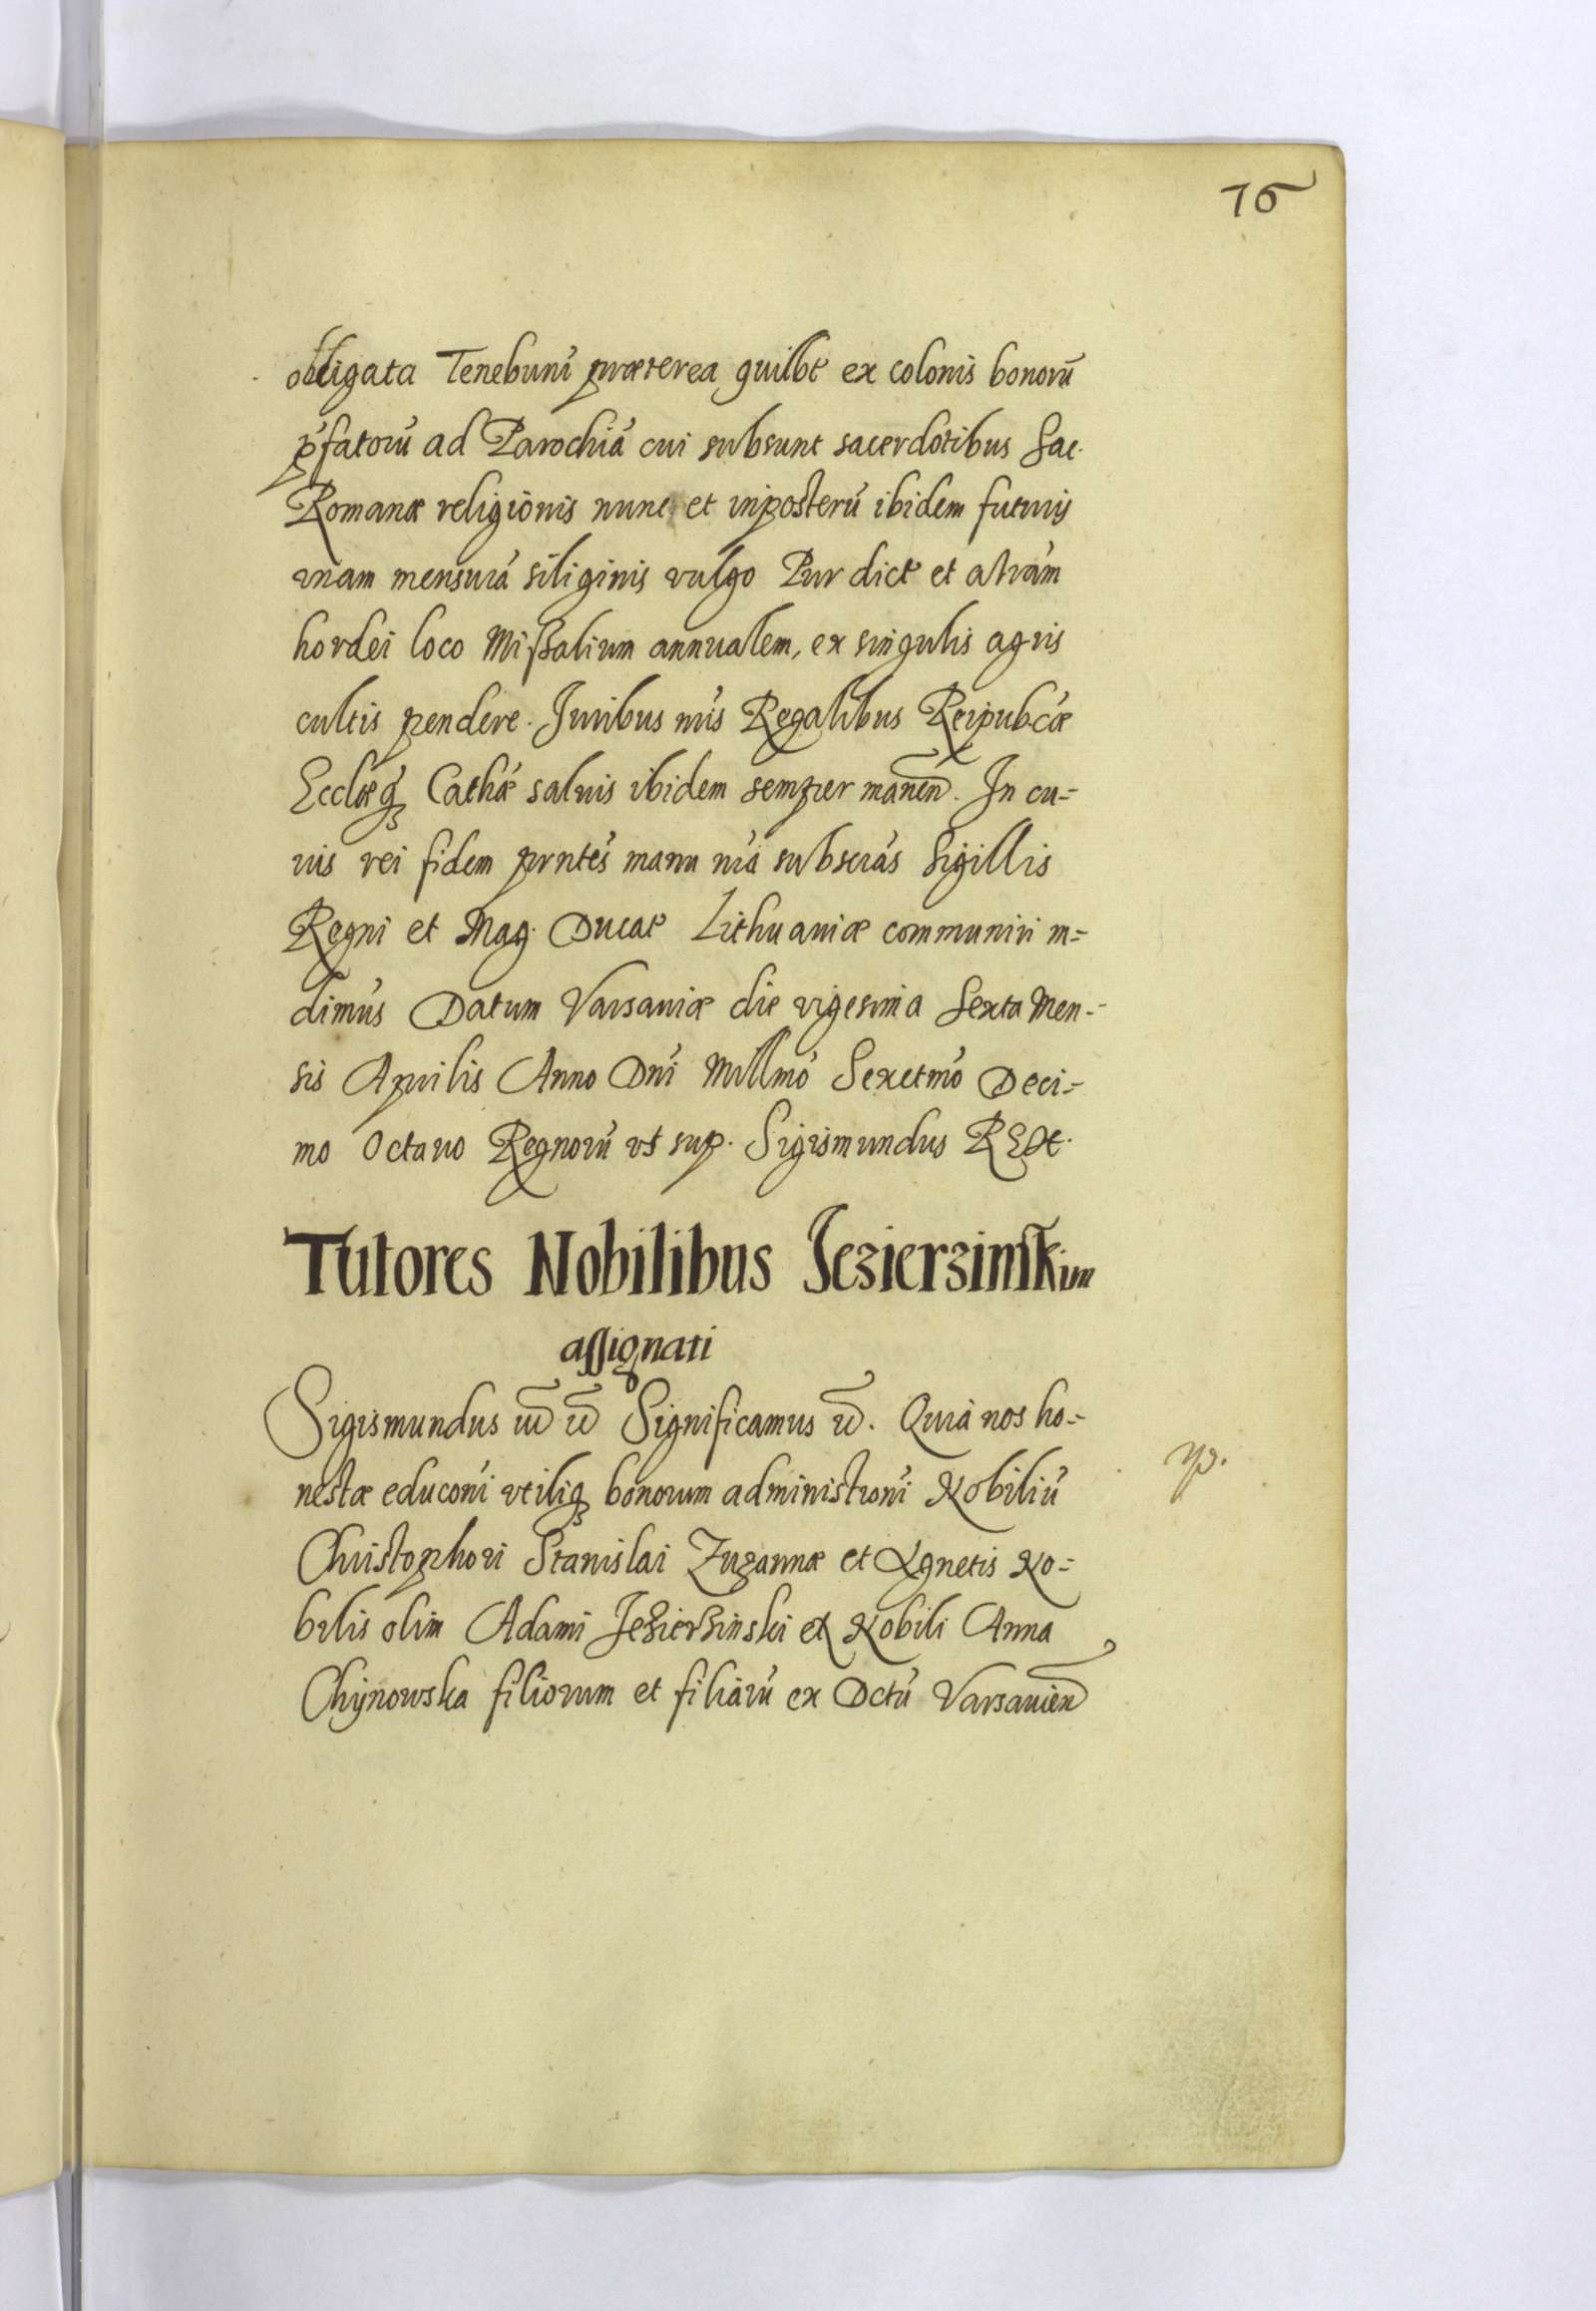 76
obligata Tenebunt̃ præterea quilbt ex colonis bonorũ
p̃fatorũ ad Parochiã cui subsunt sacerdotibus Sac.
Romanæ religionis nunc et inposterũ ibidem futuris
unam mensurã siliginis vulgo Pur dict et alrãm
hordei loco Mißalium annualem, ex singulis agris
cultis pendere. Juribus nr̃is Regalibus Reipubcæ
Ecclæq̃ Cathæ salvis ibidem semper manen̄. In cu=
ius rei fidem prntẽs manu nr̃a subscrãs Sigillis
Regni et Mag. Ducat Lithuaniæ communiri m=
dimus Datum Varsaviæ die vigesima Sexta Men-
sis Aprilis Anno Dnĩ Millmõ Sexctmõ Deci=
mo Octavo Regnorũ vt sup. Sigismundus REx.
Tutores Nobilibus Jezierzinskim
assignati
Sigismundus etc̄ etc̄ Significamus etc̄. Quia nos ho-
nestæ educonĩ utiliq̃ bonorum administronĩ Nobiliũ
Christophori Stanislai Zuzannæ et Agnetis No=
bilis olim Adami Jezierzinski ex Nobili Anna
Chynowska filiorum et filiarũ ex Dctũ Varsavien̄